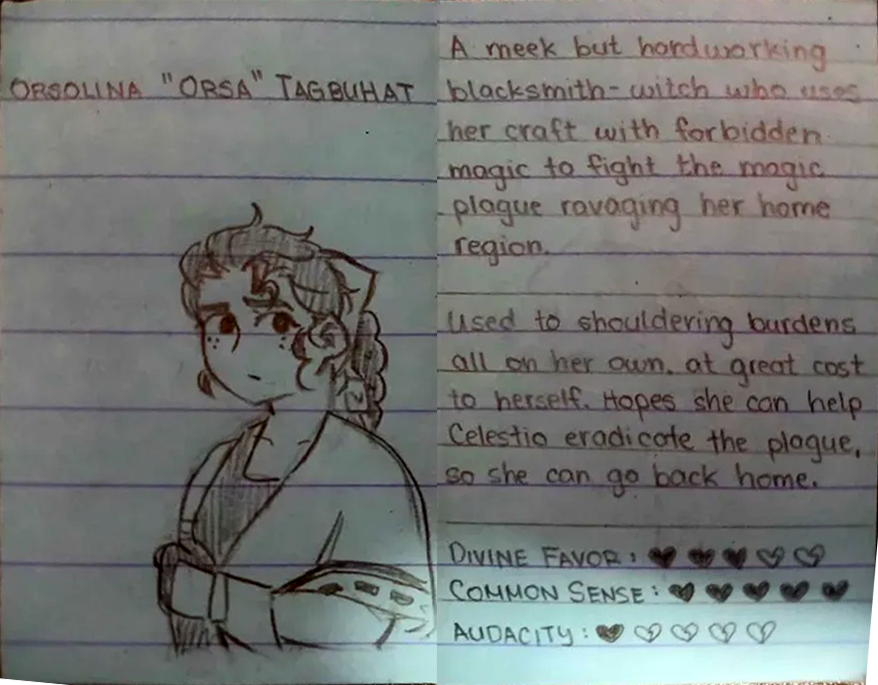 ORSOLINA "ORSA" TAGBUHAT
A meek but hardworking
blacksmith-witch who uses
her craft with forbidden
magic to fight the magic
plague ravaging her home
region.
Used to shouldering burdens
all on her own, at great cost
to herself. Hopes she can help
Celestia eradicate the plague,
so she can go back home.
DIVINE FAVOR:
COMMON SENSE:
AUDACITY: